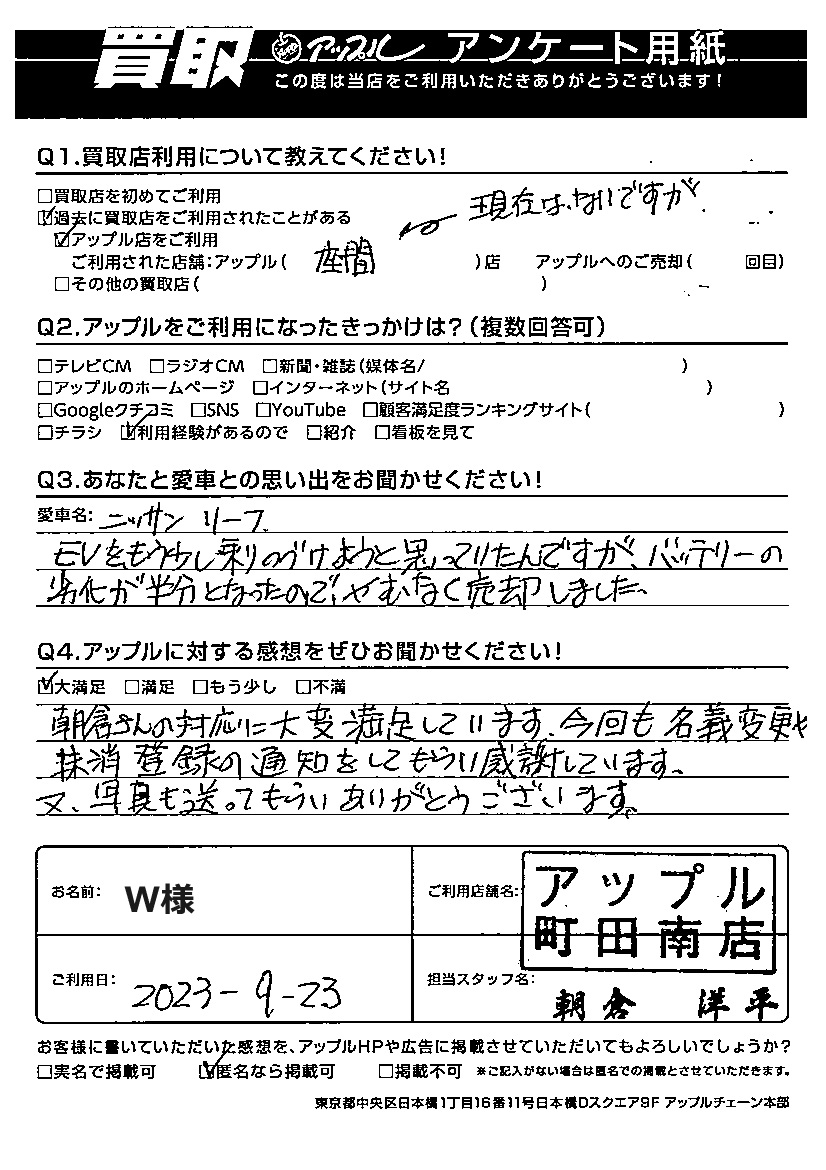 買取 アップル アンケート用紙
この度は当店をご利用いただきありがとうございます!
Q1.買取店利用について教えてください!
□買取店を初めてご利用
☑過去に買取店をご利用されたことがある
現在は、ないですが
☑アップル店をご利用
ご利用された店舗:アップル( 座間 )店 アップルへのご売却( 回目)
□その他の買取店( )
Q2.アップルをご利用になったきっかけは?(複数回答可)
□テレビCM □ラジオCM □新聞・雑誌(媒体名/ )
□アップルのホームページ □インターネット(サイト名 )
□Googleクチコミ □SNS □YouTube □顧客満足度ランキングサイト( )
□チラシ ☑利用経験があるので □紹介 □看板を見て
Q3.あなたと愛車との思い出をお聞かせください!
愛車名: ニッサン リーフ
EVをもう少し乗りつづけようと思っていたんですが、バッテリーの
劣化が半分となったので、やむなく売却しました。
Q4.アップルに対する感想をぜひお聞かせください!
☑大満足 □満足 □もう少し □不満
朝倉さんの対応に大変満足しています。今回も名義変更
抹消登録の通知をしてもらい感謝しています。
又、写真も送ってもらいありがとうございます。
お名前: W様
ご利用店舗名: アップル
町田南店
ご利用日: 2023-9-23
担当スタッフ名: 朝倉 洋平
お客様に書いていただいた感想を、アップルHPや広告に掲載させていただいてもよろしいでしょうか?
□実名で掲載可 ☑匿名なら掲載可 □掲載不可 ※ご記入がない場合は匿名での掲載とさせていただきます。
東京都中央区日本橋1丁目16番11号日本橋Dスクエア9F アップルチェーン本部